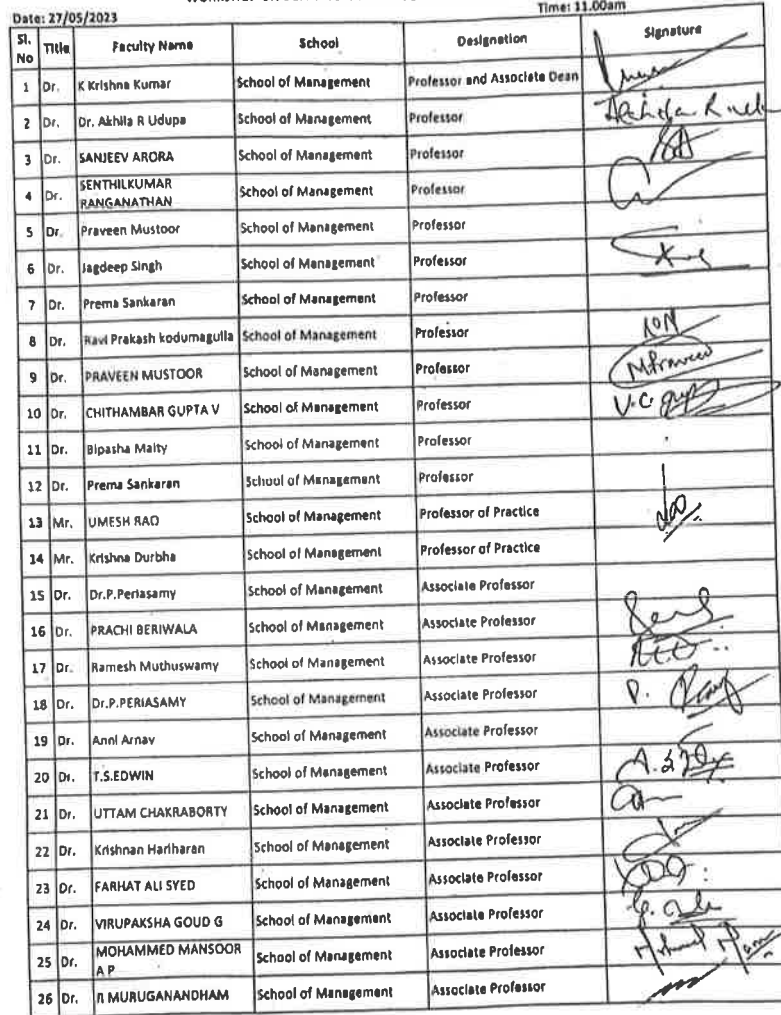 Date: 27/05/2023
Time: 11.00am
Sl. No Title Faculty Name School Designation Signature
1 Dr. K Krishna Kumar School of Management Professor and Associate Dean
2 Dr. Dr. Akhila R Udupa School of Management Professor
3 Dr. SANJEEV ARORA School of Management Professor
4 Dr. SENTHILKUMAR RANGANATHAN School of Management Professor
5 Dr. Praveen Mustoor School of Management Professor
6 Dr. Jagdeep Singh School of Management Professor
7 Dr. Prema Sankaran School of Management Professor
8 Dr. Ravi Prakash kodumagulla School of Management Professor
9 Dr. PRAVEEN MUSTOOR School of Management Professor
10 Dr. CHITHAMBAR GUPTA V School of Management Professor
11 Dr. Bipasha Maity School of Management Professor
12 Dr. Prema Sankaran School of Management Professor
13 Mr. UMESH RAO School of Management Professor of Practice
14 Mr. Krishna Durbha School of Management Professor of Practice
15 Dr. Dr.P.Periasamy School of Management Associate Professor
16 Dr. PRACHI BERIWALA School of Management Associate Professor
17 Dr. Ramesh Muthuswamy School of Management Associate Professor
18 Dr. Dr.P.PERIASAMY School of Management Associate Professor
19 Dr. Anni Arnav School of Management Associate Professor
20 Dr. T.S.EDWIN School of Management Associate Professor
21 Dr. UTTAM CHAKRABORTY School of Management Associate Professor
22 Dr. Krishnan Hariharan School of Management Associate Professor
23 Dr. FARHAT ALI SYED School of Management Associate Professor
24 Dr. VIRUPAKSHA GOUD G School of Management Associate Professor
25 Dr. MOHAMMED MANSOOR A P School of Management Associate Professor
26 Dr. MURUGANANDHAM School of Management Associate Professor